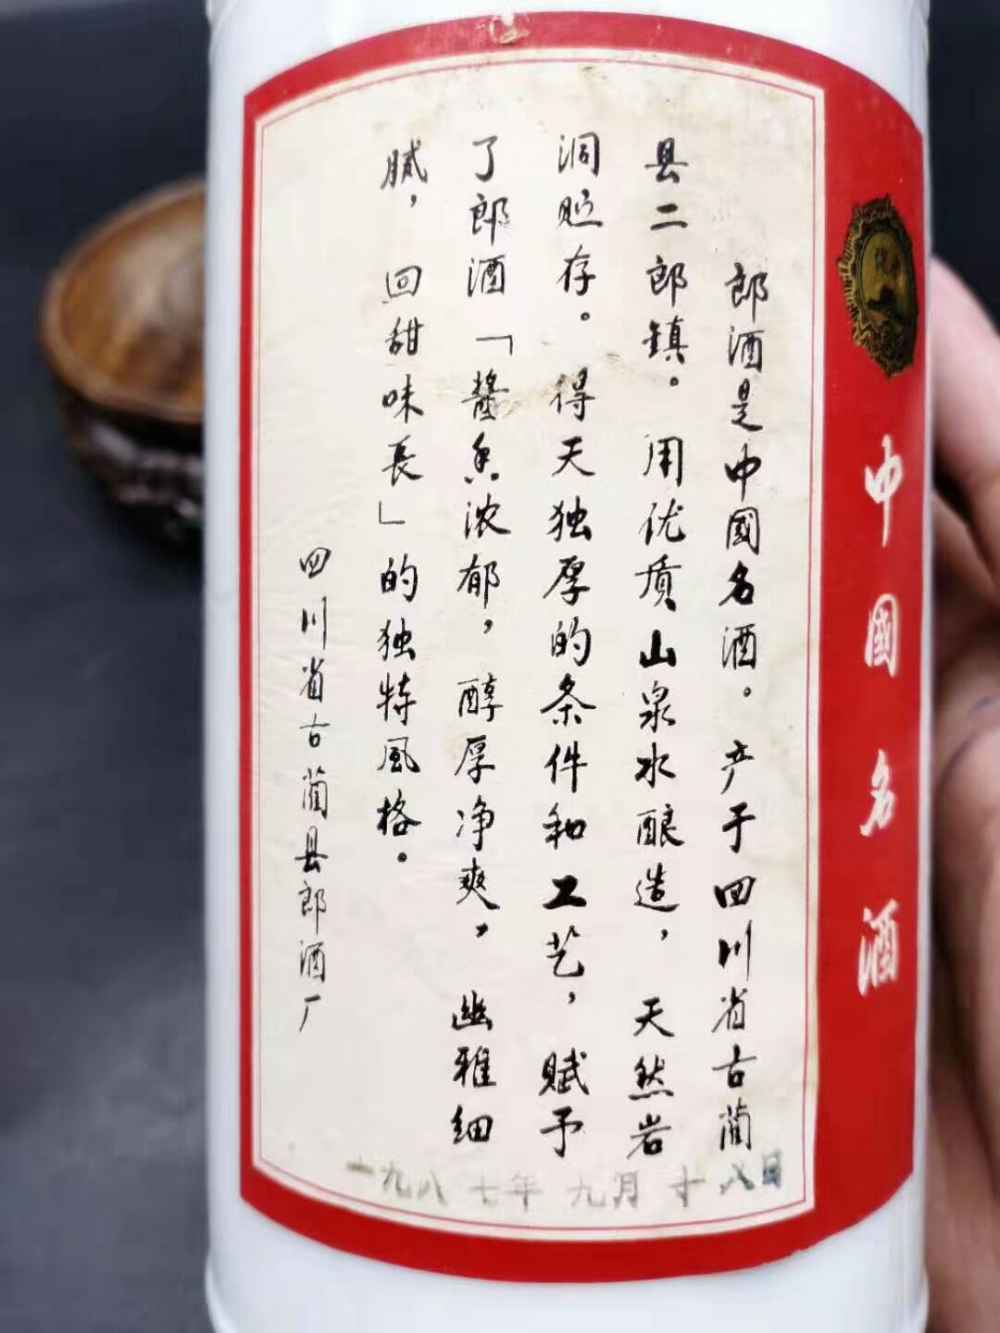 中國名酒
郎酒是中國名酒。产于四川省古藺
县二郎鎮。用优质山泉水酿造，天然岩
洞贮存。得天独厚的条件和工艺，赋予
了郎酒「醬香浓郁，醇厚净爽，幽雅细
腻，回甜味長」的独特風格。
四川省古藺县郎酒厂
一九八七年九月十八日